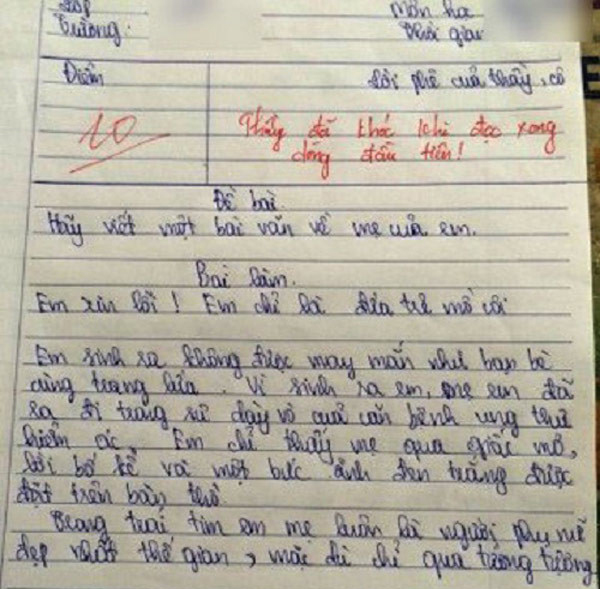 Lớp Môn học
Trường: Thời gian
Điểm Lời phê của thầy, cô
10 Thầy đã khóc khi đọc xong
dòng đầu tiên!
Đề bài.
Hãy viết một bài văn về mẹ của em.
Bài làm.
Em xin lỗi! Em chỉ là đứa trẻ mồ côi
Em sinh ra không được may mắn như bạn bè
cùng trang lứa. Vì sinh ra em, mẹ em đã
ra đi trong sự dày vò của căn bệnh ung thư
hiểm ác. Em chỉ thấy mẹ qua giấc mơ,
lời bố kể và một bức ảnh đen trắng được
đặt trên bàn thờ.
Trong trái tim em mẹ luôn là người phụ nữ
đẹp nhất thế gian, mặc dù chỉ qua tưởng tượng